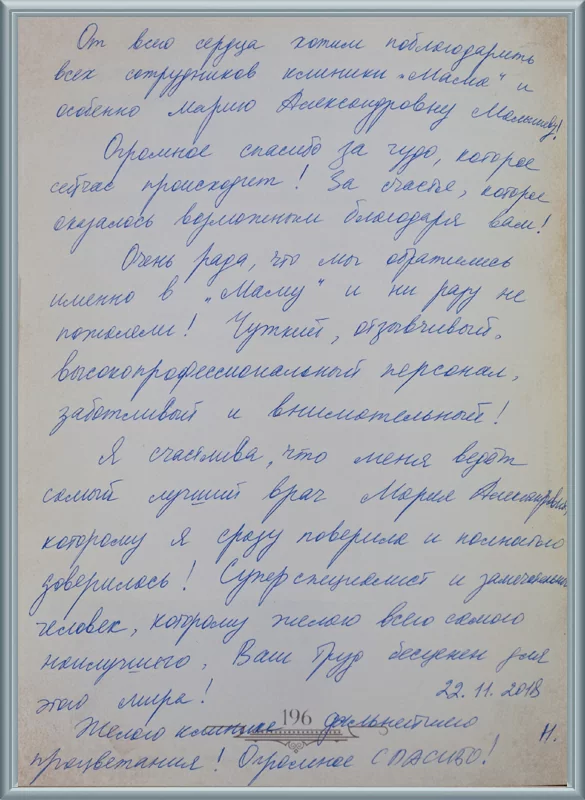 От всего сердца хотим поблагодарить
всех сотрудников клиники „Мама“ и
особенно Марию Александровну Малышеву!
Огромное спасибо за чудо, которое
сейчас происходит! За счастье, которое
оказалось возможным благодаря вам!
Очень рада, что мы обратились
именно в „Маму“ и ни разу не
пожалели! Чуткий, отзывчивый,
высокопрофессиональный персонал,
заботливый и внимательный!
Я счастлива, что меня ведёт
самый лучший врач Мария Александровна,
которому я сразу поверила и полностью
доверилась! Суперспециалист и замечательный
человек, которому желаю всего самого
наилучшего. Ваш Труд бесценен для
этого мира!
22.11.2018
196
Желаю клинике дальнейшего
Н.
процветания! Огромное СПАСИБО!